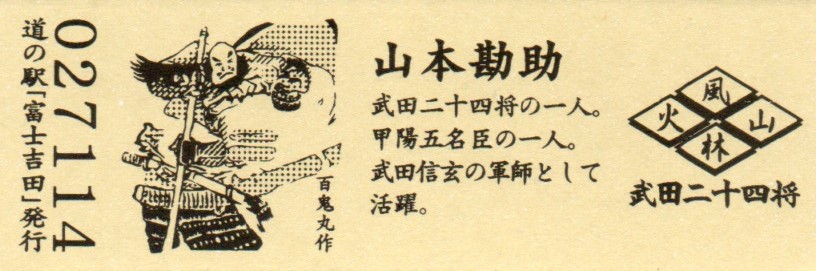 027114
道の駅「富士吉田」発行
百鬼丸作
山本勘助
武田二十四将の一人。
甲陽五名臣の一人。
武田信玄の軍師として
活躍。
風
火 山
林
武田二十四将